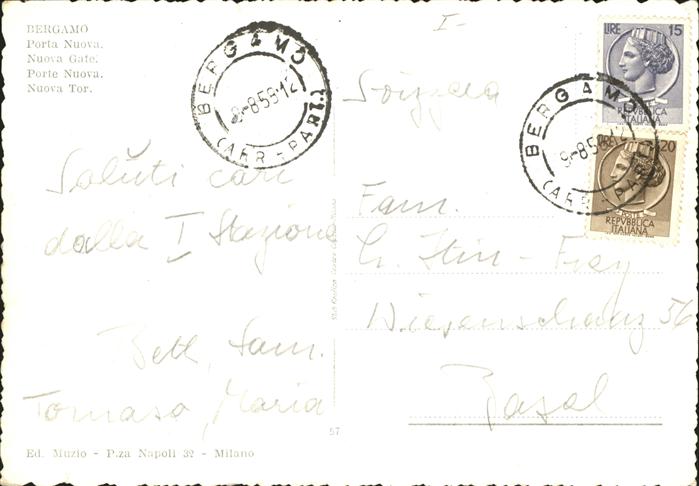 BERGAMO
Porta Nuova.
Nuova Gate.
Porte Nuova.
Nuova Tor.
I-
BERGAMO
9-8-56-12
(ARR-PAR
LIRE 15
REPVBBLICA
ITALIANA
BERGAMO
9-8-5
(ARR-PA
LIRE 20
POSTE
REPVBBLICA
ITALIANA
Svizzera
Saluti cari
dalla I Stazione
Fam.
Stin - Frey
Wiesenschanz 56
Basel
Fam.
Tomaso, Maria
57
Ed. Muzio - P.za Napoli 32 - Milano